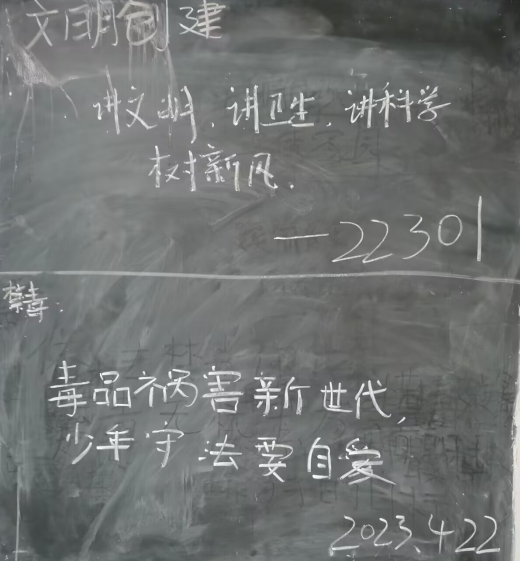 文明创建
讲文明,讲卫生,讲科学
树新风.
—22301
禁毒:
毒品祸害新世代,
少年守法要自爱
2023.4.22